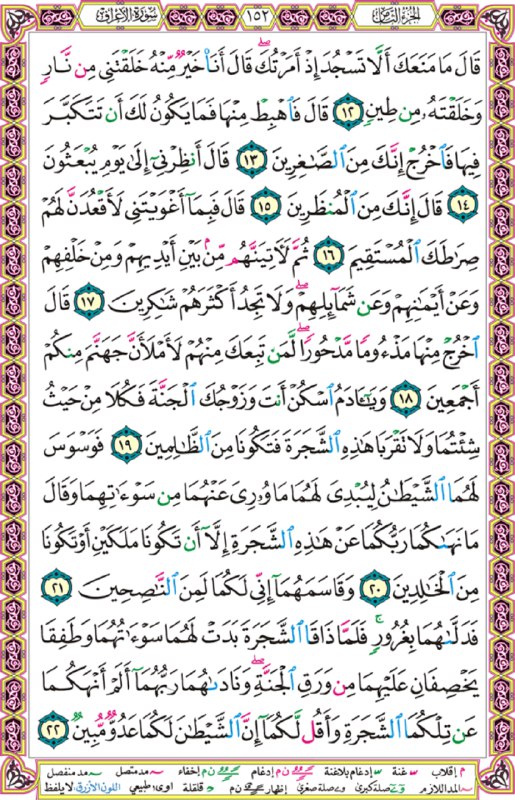 الجزء الثامن ١٥٢ سورة الأعراف
قَالَ مَا مَنَعَكَ أَلَّا تَسْجُدَ إِذْ أَمَرْتُكَ ۖ قَالَ أَنَا۠ خَيْرٌ مِّنْهُ خَلَقْتَنِى مِن نَّارٍ
وَخَلَقْتَهُۥ مِن طِينٍ ١٢ قَالَ فَٱهْبِطْ مِنْهَا فَمَا يَكُونُ لَكَ أَن تَتَكَبَّرَ
فِيهَا فَٱخْرُجْ إِنَّكَ مِنَ ٱلصَّـٰغِرِينَ ١٣ قَالَ أَنظِرْنِىٓ إِلَىٰ يَوْمِ يُبْعَثُونَ
١٤ قَالَ إِنَّكَ مِنَ ٱلْمُنظَرِينَ ١٥ قَالَ فَبِمَآ أَغْوَيْتَنِى لَأَقْعُدَنَّ لَهُمْ
صِرَٰطَكَ ٱلْمُسْتَقِيمَ ١٦ ثُمَّ لَـَٔاتِيَنَّهُم مِّنۢ بَيْنِ أَيْدِيهِمْ وَمِنْ خَلْفِهِمْ
وَعَنْ أَيْمَـٰنِهِمْ وَعَن شَمَآئِلِهِمْ ۖ وَلَا تَجِدُ أَكْثَرَهُمْ شَـٰكِرِينَ ١٧ قَالَ
ٱخْرُجْ مِنْهَا مَذْءُومًا مَّدْحُورًا ۖ لَّمَن تَبِعَكَ مِنْهُمْ لَأَمْلَأَنَّ جَهَنَّمَ مِنكُمْ
أَجْمَعِينَ ١٨ وَيَـٰٓـَٔادَمُ ٱسْكُنْ أَنتَ وَزَوْجُكَ ٱلْجَنَّةَ فَكُلَا مِنْ حَيْثُ
شِئْتُمَا وَلَا تَقْرَبَا هَـٰذِهِ ٱلشَّجَرَةَ فَتَكُونَا مِنَ ٱلظَّـٰلِمِينَ ١٩ فَوَسْوَسَ
لَهُمَا ٱلشَّيْطَـٰنُ لِيُبْدِىَ لَهُمَا مَا وُۥرِىَ عَنْهُمَا مِن سَوْءَٰتِهِمَا وَقَالَ
مَا نَهَىٰكُمَا رَبُّكُمَا عَنْ هَـٰذِهِ ٱلشَّجَرَةِ إِلَّآ أَن تَكُونَا مَلَكَيْنِ أَوْ تَكُونَا
مِنَ ٱلْخَـٰلِدِينَ ٢٠ وَقَاسَمَهُمَآ إِنِّى لَكُمَا لَمِنَ ٱلنَّـٰصِحِينَ ٢١
فَدَلَّىٰهُمَا بِغُرُورٍ ۚ فَلَمَّا ذَاقَا ٱلشَّجَرَةَ بَدَتْ لَهُمَا سَوْءَٰتُهُمَا وَطَفِقَا
يَخْصِفَانِ عَلَيْهِمَا مِن وَرَقِ ٱلْجَنَّةِ ۖ وَنَادَىٰهُمَا رَبُّهُمَآ أَلَمْ أَنْهَكُمَا
عَن تِلْكُمَا ٱلشَّجَرَةِ وَأَقُل لَّكُمَآ إِنَّ ٱلشَّيْطَـٰنَ لَكُمَا عَدُوٌّ مُّبِينٌ ٢٢
م إقلاب غنة إدغام بلاغنة ن م إدغام ن م إخفاء مد متصل مد منفصل
المد اللازم صلة كبرى صلة صغرى إظهار ن م قلقلة اوى: طبيعي اللون الأزرق: لا يلفظ